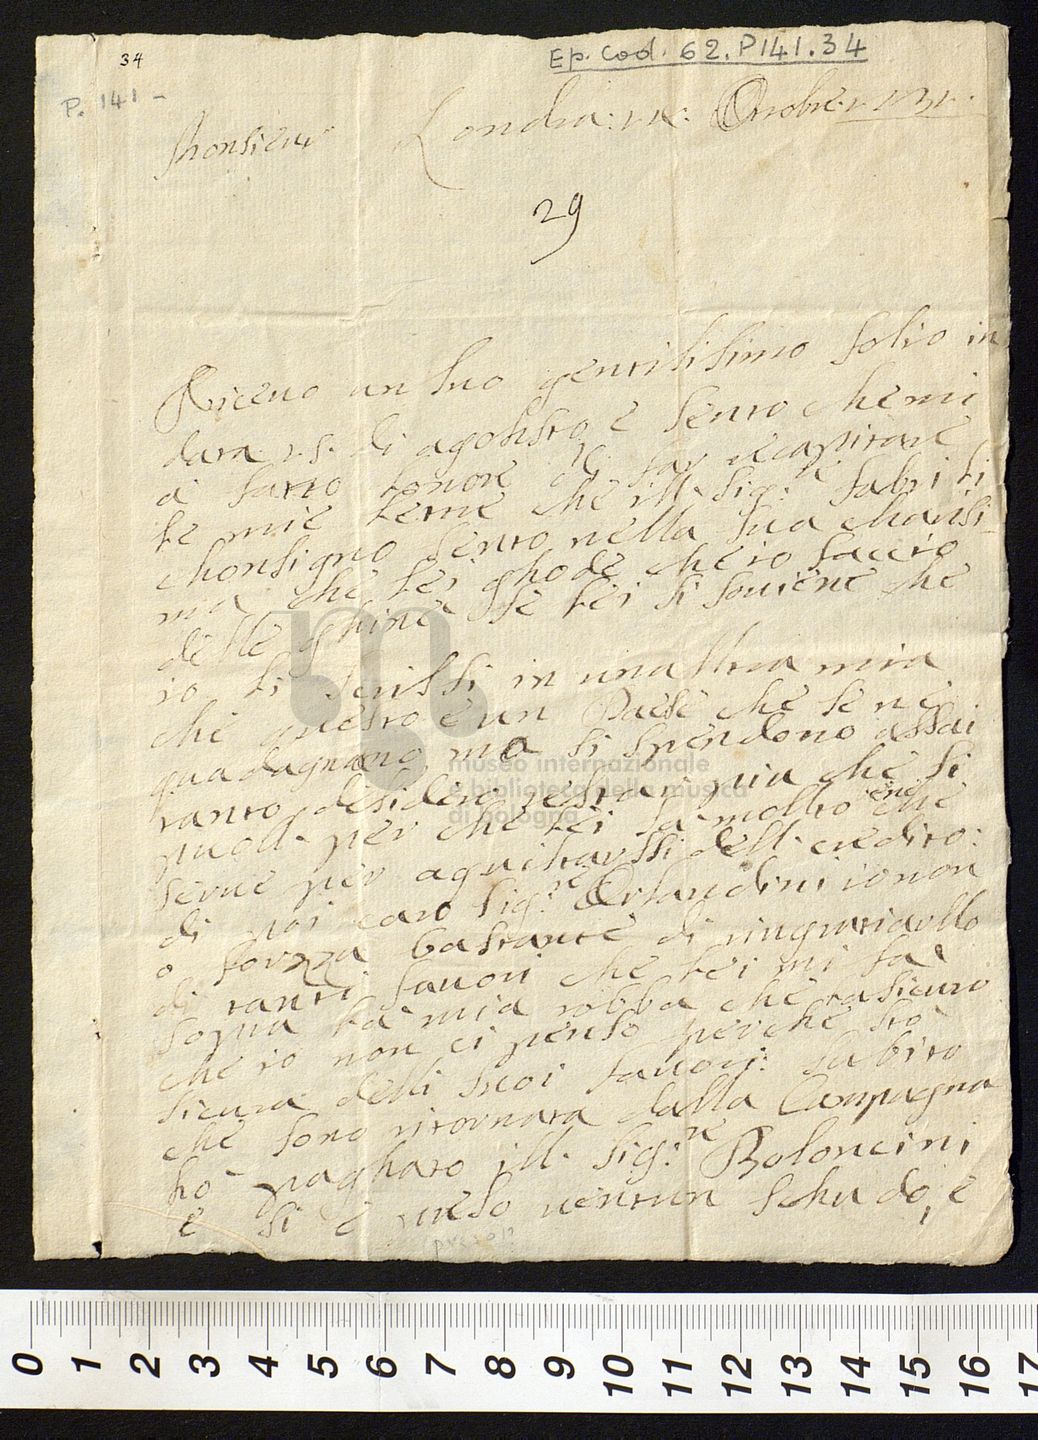 34
Ep. Cod. 62. P141.34
P. 141 -
Monsieur
Londra: Ottobre
29
Riceuo un suo gentilisimo folio in
data 15: di agohsto e sento che mi
a fatto lonore di far recapitare
le mie letere che ill. Sig.ra fabri ti
chonsigno sento nella sua charisi-
ma che lei ghode che io faccio
delle ghinè se lei si souiene che
io li scrissi in unaltra mia
che questo è un Paese che se nè
guadagnano, ma si spendono assai
tanto desidero resta mia che si
puoll. per che lei sà molto bene che
serue per aquitarssi dell. credito:
di poi caro Sig.re Orlandini io non
o forzza bastante di ringratiarllo
di tanti fauori che lei mi fa
sopra la mia robba che lasicuro
che io non ci penso perche stò
sicura delli suoi fauori: subito
che sono ritornata dalla Campagna
hò paghato ill. Sig.re Boloncini
e si è preso uentun schudo, e
presoli
museo internazionale
e biblioteca della musica
di bologna
0 1 2 3 4 5 6 7 8 9 10 11 12 13 14 15 16 17